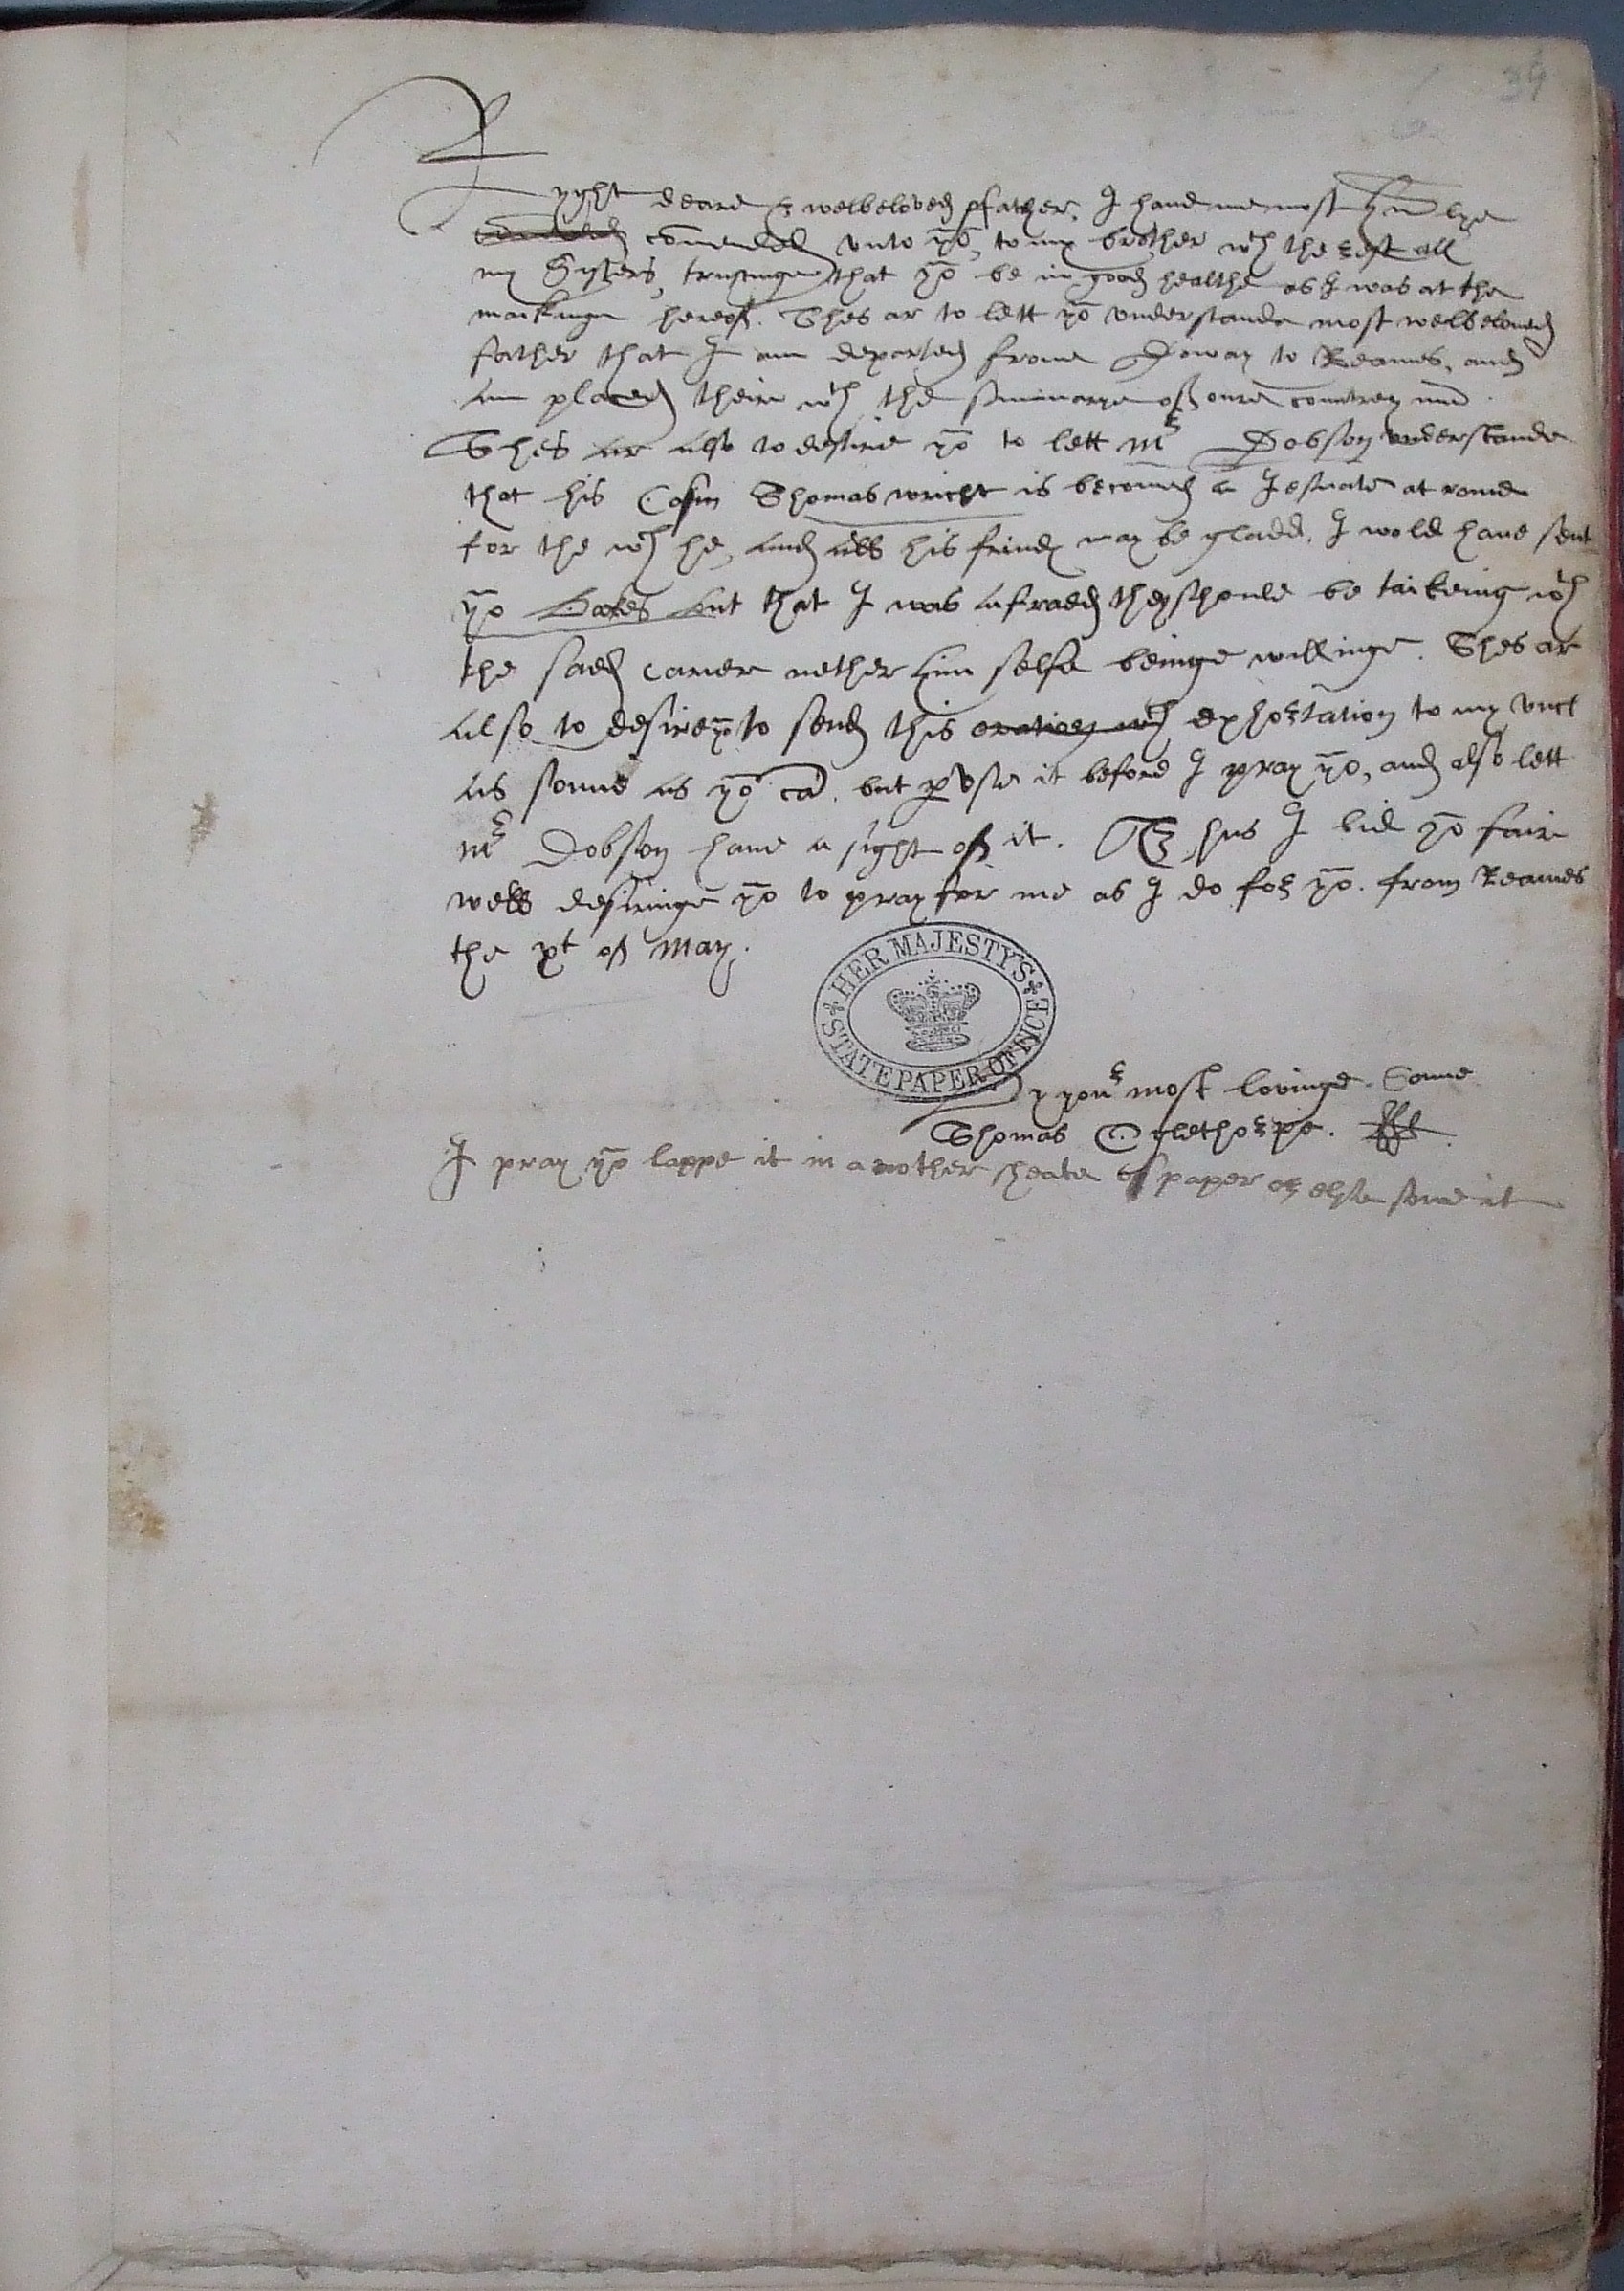 39
Ryght deare & welbeloved father, I have me most hūblye
comended vnto yo, to my brother wth the rest all
my Sisters, trustinge that yo be in good healthe as I was at the
maikinge hereof. Thes ar to lett yo vnderstande most welbeloved
father that I am departed frome Doway to Reames, and
am placed their wth the seminarye off oure countrey men.
Thes ar also to desire yo to lett Mr Dobson vnderstande
that his Cosin Thomas wricht is becomed a Jesuate at rome
for the wch he, and all his frinds may be gladd. I wold have sent
yo bokes but that I was afraed they schould be taikeing wth
the saed carier nether him selfe beinge willinge. Thes ar
also to desire yo to send this oration wch exhortation to my vncl
as sonne as yo cā. but pervse it before I pray yo, and also lett
Mr Dobson have a sight off it. Thus I bid yo fair
well desiringe yo to pray for me as I do for yo. from Reames
the xt off May.
HER MAJESTY'S STATE PAPER OFFICE
By your most lovinge Sonne
Thomas Oglethorpe.
I pray yo lappe it in a nother scheate off paper or else sowe it